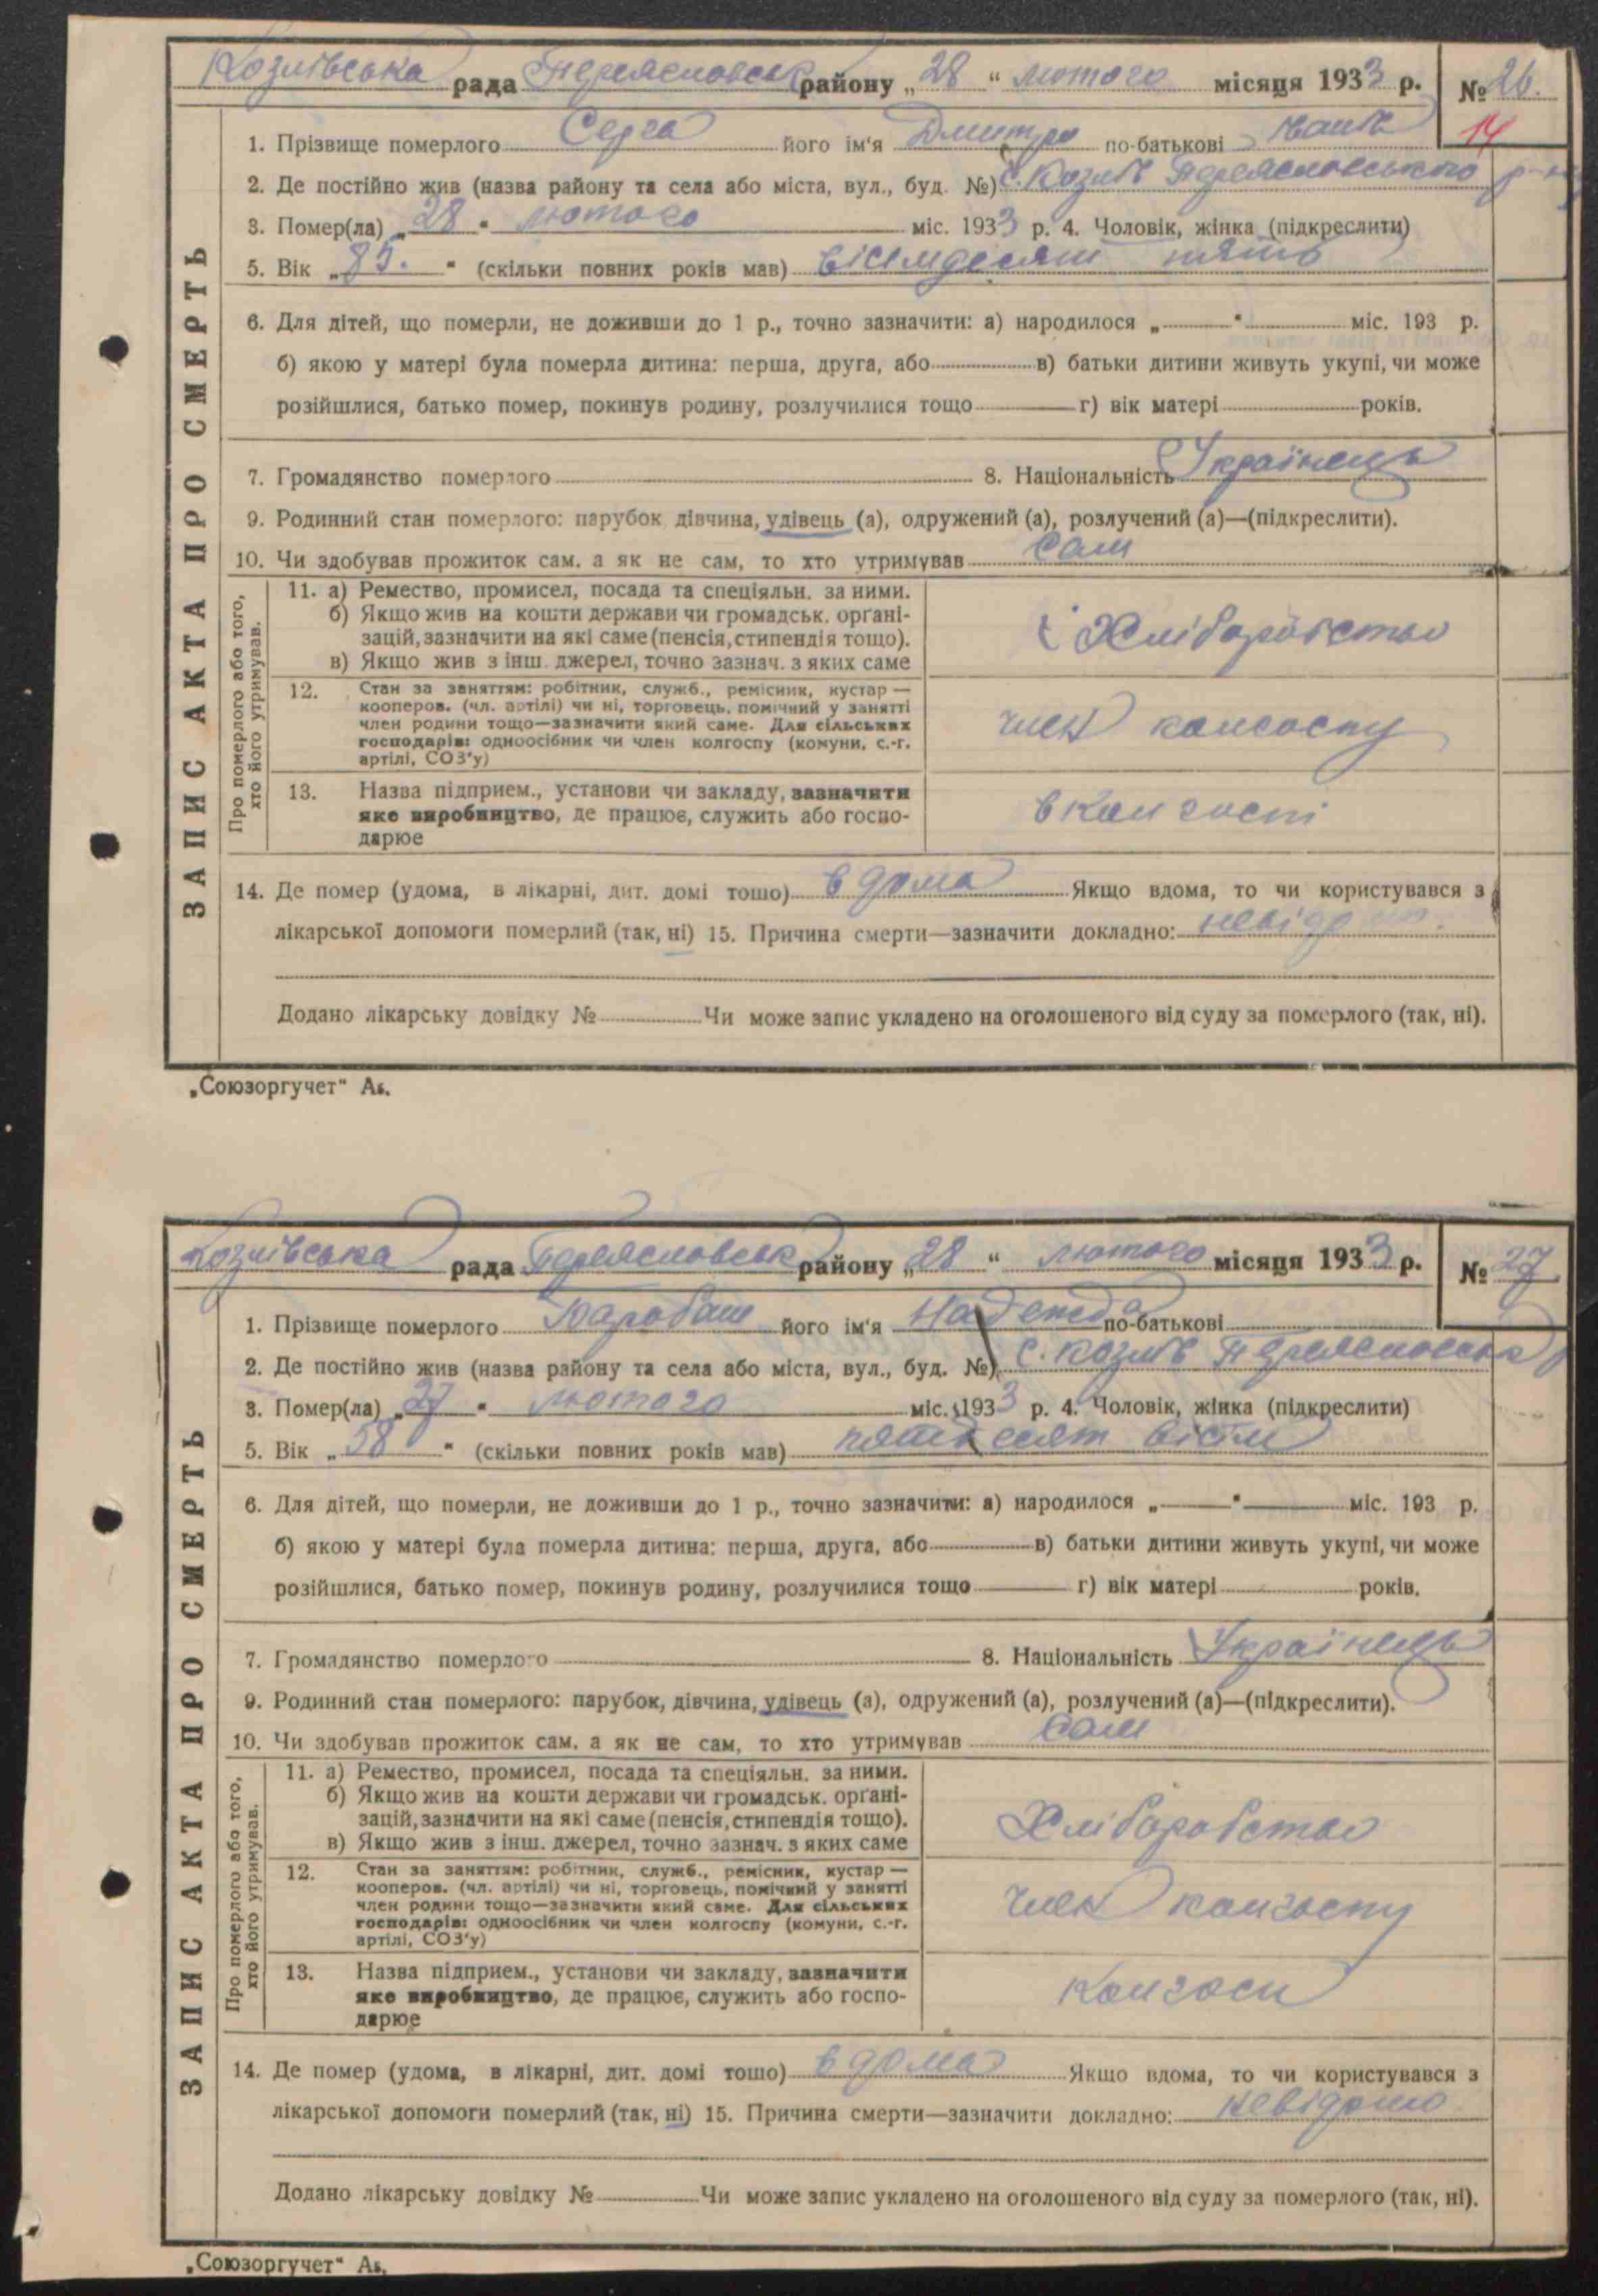 Козлівська рада Переясловськ району „28“ лютого місяця 1933 р. № 26.
14
1. Прізвище померлого Серга його ім'я Дмитро по-батькові
2. Де постійно жив (назва району та села або міста, вул., буд. №) с. Козлів Переясловського р-ну
3. Помер(ла) „28“ лютого міс. 1933 р. 4. Чоловік, жінка (підкреслити)
5. Вік „85.“ (скільки повних років мав) вісімдесят пять
6. Для дітей, що померли, не доживши до 1 р., точно зазначити: а) народилося „ “ міс. 193 р.
б) якою у матері була померла дитина: перша, друга, або в) батьки дитини живуть укупі, чи може
розійшлися, батько помер, покинув родину, розлучилися тощо г) вік матері років.
7. Громадянство померлого 8. Національність Українець
9. Родинний стан померлого: парубок, дівчина, удівець (а), одружений (а), розлучений (а)—(підкреслити).
10. Чи здобував прожиток сам, а як не сам, то хто утримував сам
ЗАПИС АКТА ПРО СМЕРТЬ
Про померлого або того,
хто його утримував.
11. а) Ремество, промисел, посада та спеціяльн. за ними.
б) Якщо жив на кошти держави чи громадськ. органі-
зацій, зазначити на які саме (пенсія, стипендія тощо).
в) Якщо жив з інш. джерел, точно зазнач. з яких саме
Хліборобство
12. Стан за заняттям: робітник, служб., ремісник, кустар —
кооперов. (чл. артілі) чи ні, торговець, помічний у занятті
член родини тощо—зазначити який саме. Для сільських
господарів: одноосібник чи член колгоспу (комуни, с.-г.
артілі, СОЗ'у)
член колгоспу
13. Назва підприєм., установи чи закладу, зазначити
яке виробництво, де працює, служить або госпо-
дарює
в колгоспі
14. Де помер (удома, в лікарні, дит. домі тощо) вдома Якщо вдома, то чи користувався з
лікарської допомоги померлий (так, ні) 15. Причина смерти—зазначити докладно:
Додано лікарську довідку № Чи може запис укладено на оголошеного від суду за померлого (так, ні).
„Союзоргучет“ А₅.
Козлівська рада Переясловськ району „28“ лютого місяця 1933 р. № 27
1. Прізвище померлого його ім'я Надежда по-батькові
2. Де постійно жив (назва району та села або міста, вул., буд. №) с. Козлів Переясловськ р
3. Помер(ла) „27“ лютого міс. 1933 р. 4. Чоловік, жінка (підкреслити)
5. Вік „58“ (скільки повних років мав) пятдесят вісім
6. Для дітей, що померли, не доживши до 1 р., точно зазначити: а) народилося „ “ міс. 193 р.
б) якою у матері була померла дитина: перша, друга, або в) батьки дитини живуть укупі, чи може
розійшлися, батько помер, покинув родину, розлучилися тощо г) вік матері років.
7. Громадянство померлого 8. Національність Українець
9. Родинний стан померлого: парубок, дівчина, удівець (а), одружений (а), розлучений (а)—(підкреслити).
10. Чи здобував прожиток сам, а як не сам, то хто утримував сам
ЗАПИС АКТА ПРО СМЕРТЬ
Про померлого або того,
хто його утримував.
11. а) Ремество, промисел, посада та спеціяльн. за ними.
б) Якщо жив на кошти держави чи громадськ. органі-
зацій, зазначити на які саме (пенсія, стипендія тощо).
в) Якщо жив з інш. джерел, точно зазнач. з яких саме
Хліборобство
12. Стан за заняттям: робітник, служб., ремісник, кустар —
кооперов. (чл. артілі) чи ні, торговець, помічний у занятті
член родини тощо—зазначити який саме. Для сільських
господарів: одноосібник чи член колгоспу (комуни, с.-г.
артілі, СОЗ'у)
член колгоспу
13. Назва підприєм., установи чи закладу, зазначити
яке виробництво, де працює, служить або госпо-
дарює
колгосп
14. Де помер (удома, в лікарні, дит. домі тощо) вдома Якщо вдома, то чи користувався з
лікарської допомоги померлий (так, ні) 15. Причина смерти—зазначити докладно: невідомо
Додано лікарську довідку № Чи може запис укладено на оголошеного від суду за померлого (так, ні).
„Союзоргучет“ А₅.